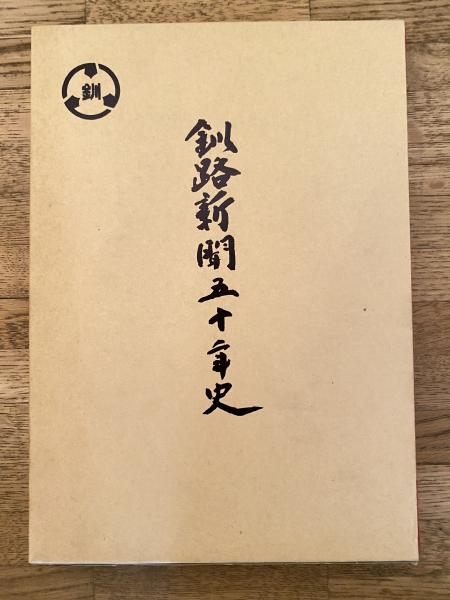 釧
釧路新聞五十年史